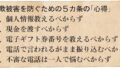 欺被害を防ぐための5カ条の「心得」
・個人情報教えるべからず
・現金を渡すべからず
・電子ギフト券番号を教えるべからず
・電話で言われるがまま振り込むべからず
・不審な電話は一人で悩むべからず